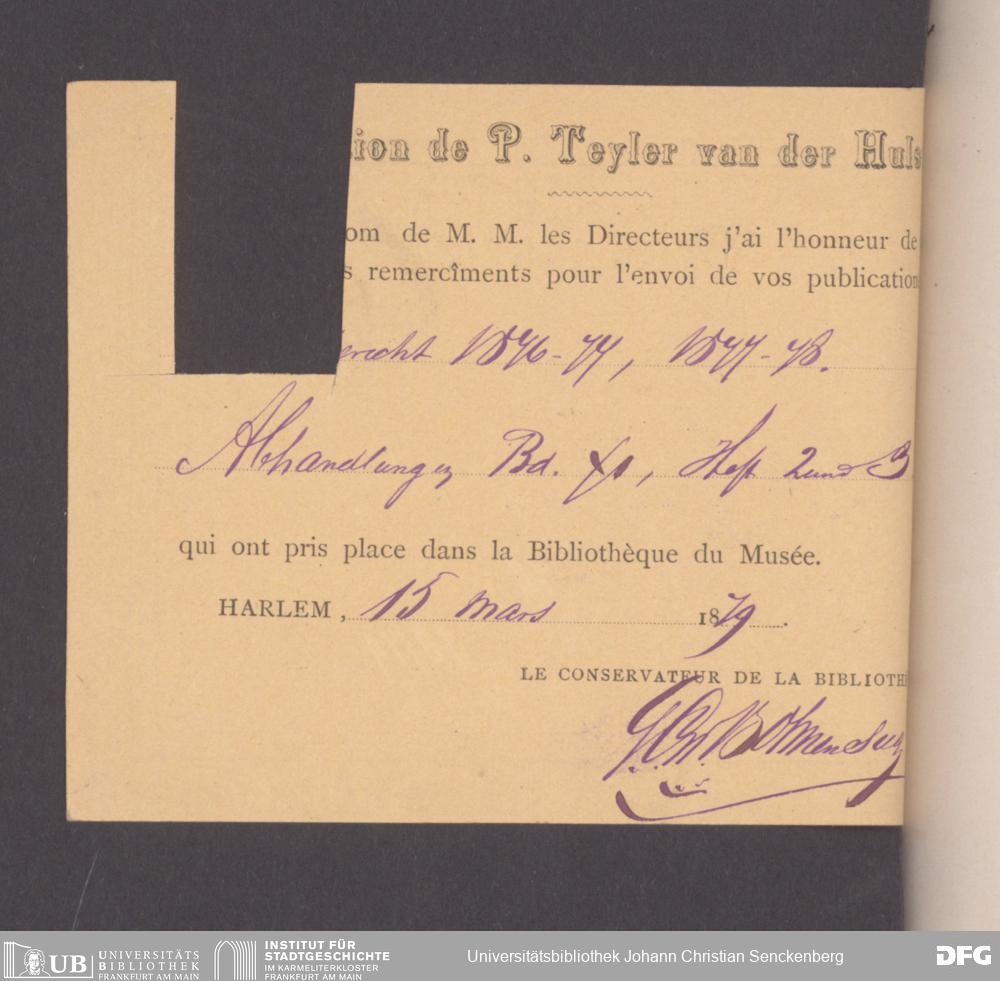 ion de P. Teyler van der Huls
om de M. M. les Directeurs j'ai l'honneur de
s remercîments pour l'envoi de vos publication
ericht 1876-77, 1877-78.
Abhandlungen Bd. , Heft 2 und 3
qui ont pris place dans la Bibliothèque du Musée.
HARLEM, 15 mars 1879.
LE CONSERVATEUR DE LA BIBLIOTHÈ
UB UNIVERSITÄTS
BIBLIOTHEK
FRANKFURT AM MAIN
INSTITUT FÜR
STADTGESCHICHTE
IM KARMELITERKLOSTER
FRANKFURT AM MAIN
Universitätsbibliothek Johann Christian Senckenberg
DFG